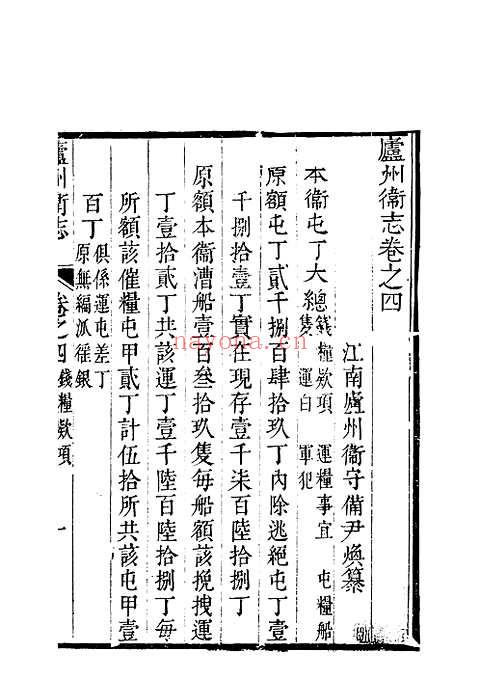 廬州衛志卷之四
江南廬州衛守備尹煥纂
本衛屯丁大總 錢糧欵項 運糧事宜 屯糧船
隻 運白 軍犯
原額屯丁貳千捌百肆拾玖丁內除逃絕屯丁壹
千捌拾壹丁實在現存壹千柒百陸拾捌丁
原額本衛漕船壹百叁拾玖隻每船額該挽拽運
丁壹拾貳丁共該運丁壹千陸百陸拾捌丁每
所額該催糧屯甲貳丁計伍拾所共該屯甲壹
百丁 俱係運屯差丁
原無編派徭銀
廬州衛志 卷之四 錢糧欵項 一
nayona.cn